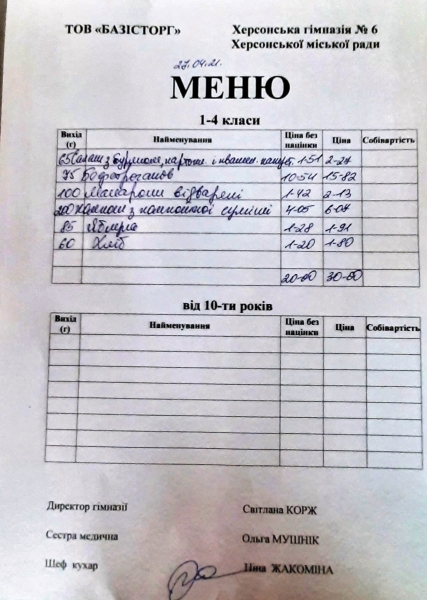 ТОВ «БАЗІСТОРГ» Херсонська гімназія № 6
Херсонської міської ради
27.04.21.
МЕНЮ
1-4 класи
Вихід (г) Найменування Ціна без націнки Ціна Собівартість
65 Салат з буряком, картоп. і квашен. капуст. 1-51 2-27
75 Бефстроганов 10-54 15-82
100 Макарони відварені 1-42 2-13
200 Компот з компотної суміші 4-05 6-07
85 Яблуко 1-28 1-91
60 Хліб 1-20 1-80
20-00 30-00
від 10-ти років
Вихід (г) Найменування Ціна без націнки Ціна Собівартість
Директор гімназії Світлана КОРЖ
Сестра медична Ольга МУШНІК
Шеф кухар ЖАКОМІНА